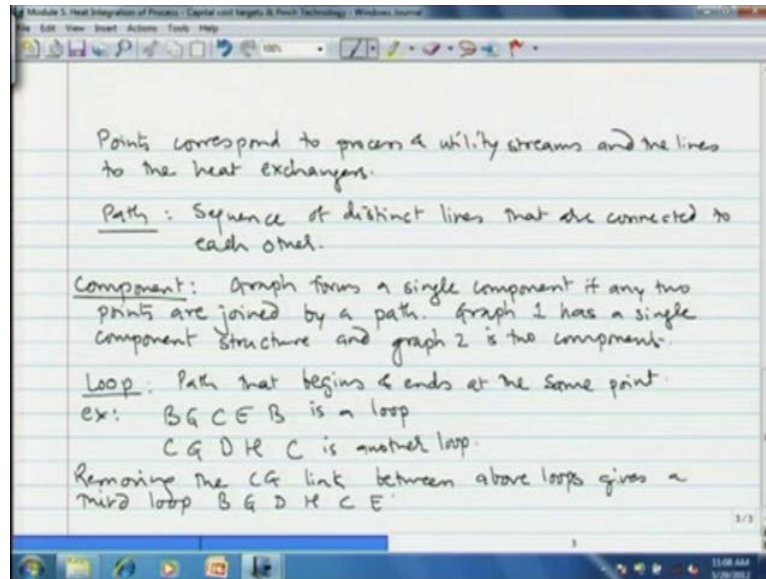 Module 5. Heat Integration of Process - Capital cost targets & Pinch Technology - Windows Journal
File Edit View Insert Actions Tools Help
100%
Points correspond to process & utility streams and the lines
to the heat exchangers.
Path : Sequence of distinct lines that are connected to
each other.
Component : Graph forms a single component if any two
points are joined by a path. Graph 1 has a single
component structure and graph 2 is two components.
Loop : Path that begins & ends at the same point.
ex: B G C E B is a loop
C G D H C is another loop.
Removing the CG link between above loops gives a
third loop B G D H C E
3/3
3
11:08 AM
5/29/2012